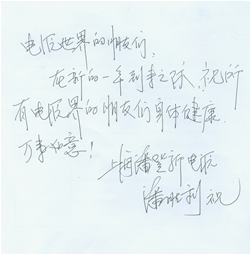 电源世界的朋友们,
在新的一年到来之际,祝所
有电源界的朋友们身体健康,
万事如意!
上海潘登新电源
潘胜利 祝